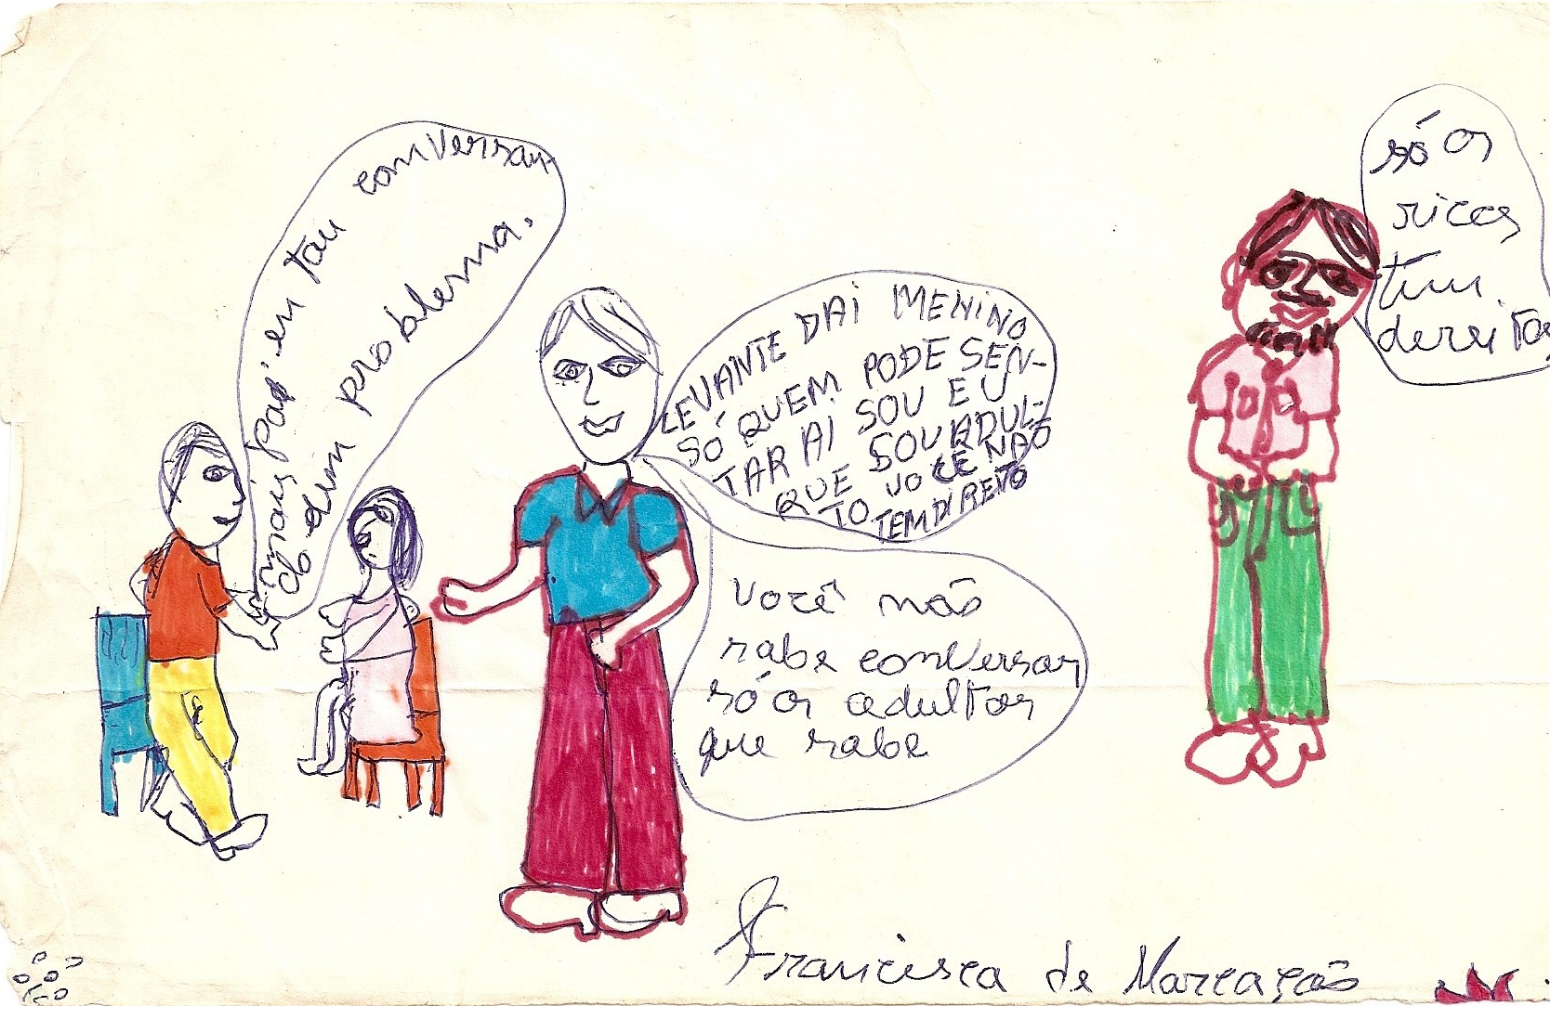 mais pap' en tou conversan
do dum problema.
LEVANTE DAI MENINO
SÓ QUEM PODE SEN-
TAR AI SOU EU
QUE SOU ADUL-
TO VOCE NAO
TEM DIREITO
Você não
sabe conversar
só os adultos
que sabe
só os
ricos
tem
dereitos
Francisca de Marcação